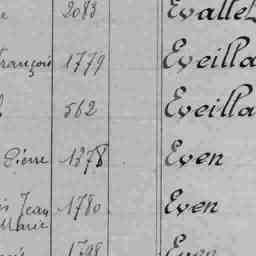 2083 Evalle
François 1779 Eveilla
562 Eveilla
Pierre 1378 Even
Jean 1780 Even
Marie
1798 Even